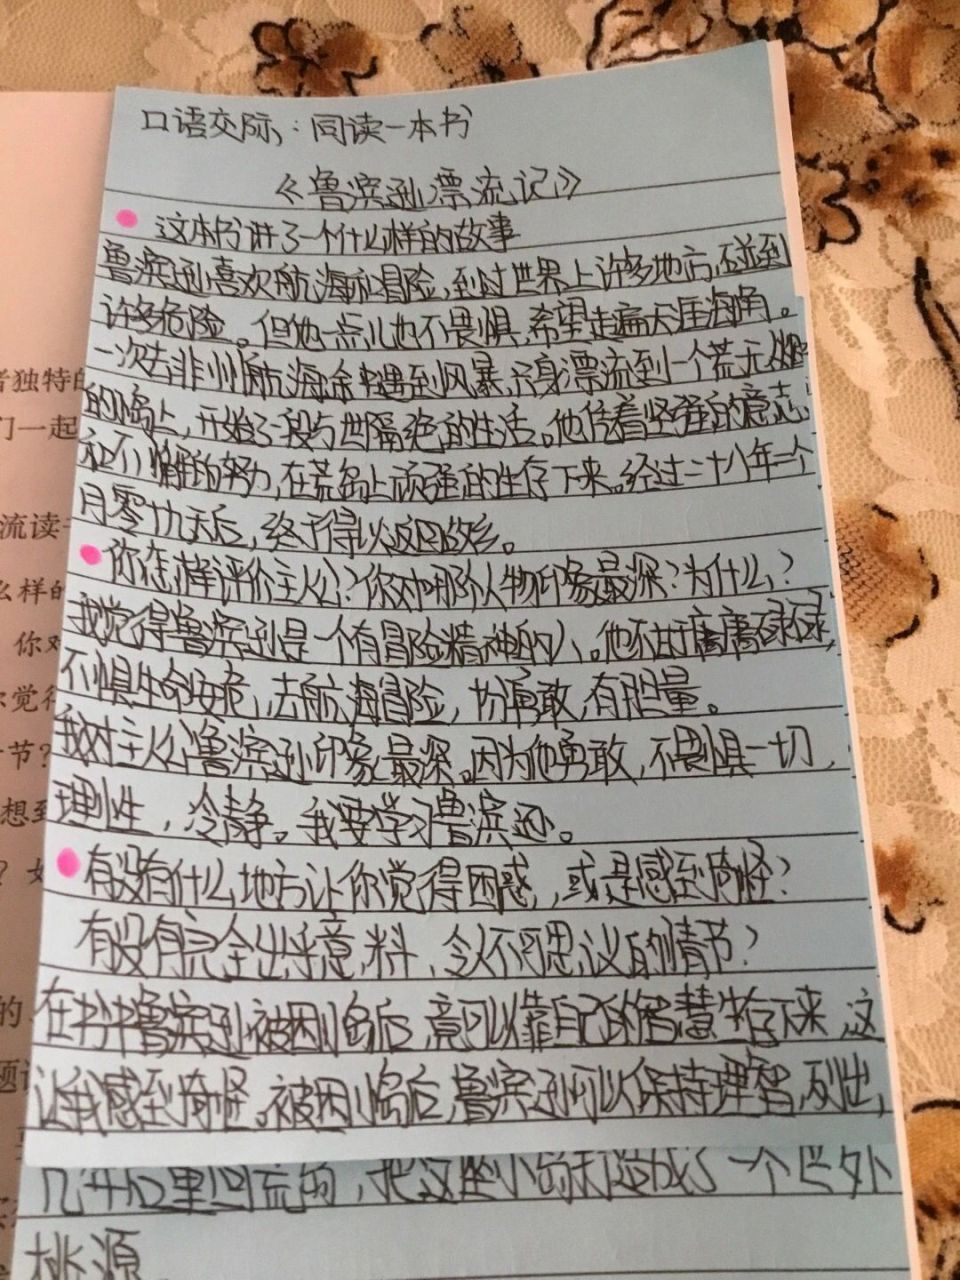 口语交际：同读一本书
《鲁滨逊漂流记》
这本书讲了一个什么样的故事
鲁滨逊喜欢航海和冒险，到过世界上许多地方，碰到
许多危险。但他一点儿也不畏惧，希望走遍天涯海角。
一次去非州航海余中遇到风暴，只身漂流到一个荒无人烟
的小岛上，开始了段与世隔绝的生活。他凭着坚强的意志
和不懈的努力，在荒岛上顽强的生存下来。经过二十八年二个
月零十九天后，终于得以返回故乡。
你怎样评价主人公？你对哪个人物印象最深？为什么？
我觉得鲁滨逊是一个有冒险精神的人。他不甘于庸庸碌碌，
不惧生命安危，去航海冒险，勇敢，有胆量。
我对主人公鲁滨逊印象最深。因为他勇敢，不畏惧一切，
理性，冷静。我要学习鲁滨逊。
有没有什么地方让你觉得困惑，或是感到奇怪？
有没有完全出乎意料，令人不可思议的情节？
在书中鲁滨逊被困小岛后，竟可以靠自己的智慧生存下来，这
让我感到奇怪。被困小岛后，鲁滨逊可以保持理智，列出，
把这座小岛打造成了一个世外
桃源
者独特的
们一起
流读
么样的
你对
觉得
节？
想到
？如
的
题